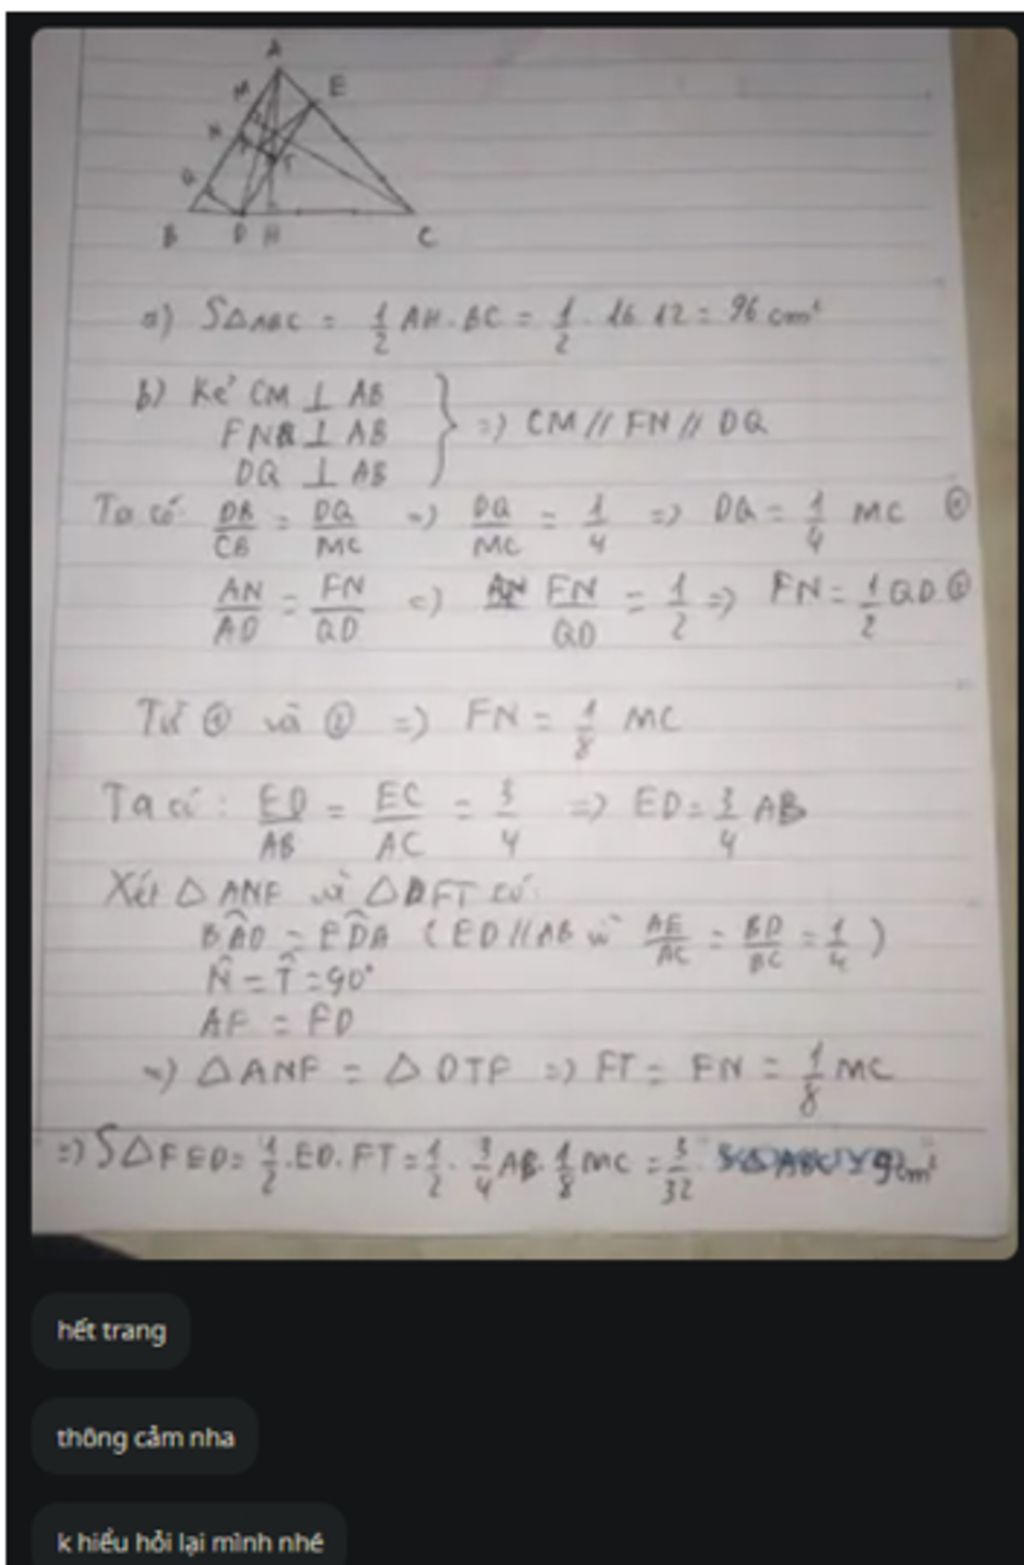 A
M
E
N
F
T
Q
B D H C
a) SΔABC = 1/2 AH.BC = 1/2 . 16.12 = 96 cm²
b) Kẻ CM ⊥ AB
FN ⊥ AB
DQ ⊥ AB
} => CM // FN // DQ
Ta có DB/CB = DQ/MC => DQ/MC = 1/4 => DQ = 1/4 MC ①
AN/AD = FN/QD => FN/QD = 1/2 => FN = 1/2 QD ②
Từ ① và ② => FN = 1/8 MC
Ta có: ED/AB = EC/AC = 3/4 => ED = 3/4 AB
Xét Δ ANF và Δ DFT có:
BÂD = ED̂A (ED // AB vì AE/AC = BD/BC = 1/4)
N̂ = T̂ = 90°
AF = FD
=> Δ ANF = Δ DTF => FT = FN = 1/8 MC
=> SΔFED = 1/2 . ED . FT = 1/2 . 3/4 AB . 1/8 MC = 3/32 9cm²
hết trang
thông cảm nha
k hiểu hỏi lại mình nhé